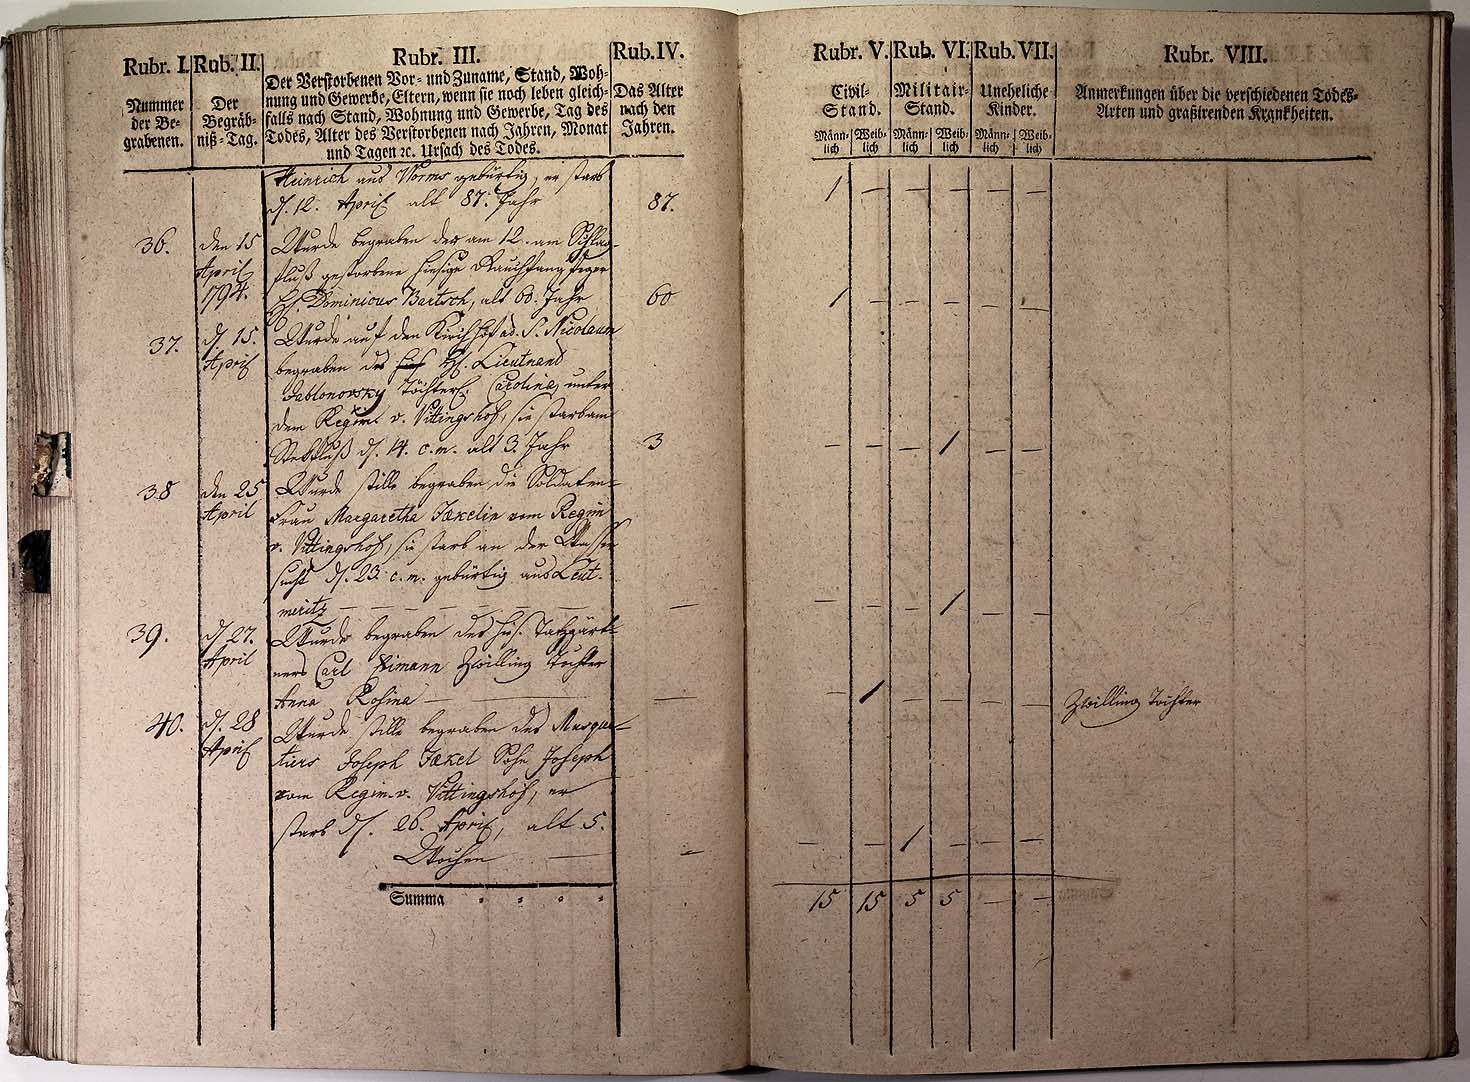 Rubr. I.
Rub. II.
Rubr. III.
Rub. IV.
Nummer
der Be-
grabenen.
Der
Begräb-
niß-Tag.
Der Verstorbenen Vor- und Zuname, Stand, Woh-
nung und Gewerbe, Eltern, wenn sie noch leben gleich-
falls nach Stand, Wohnung und Gewerbe, Tag des
Todes, Alter des Verstorbenen nach Jahren, Monat
und Tagen ꝛc. Ursach des Todes.
Das Alter
nach den
Jahren.
Heinrich aus Worms gebürtig, er starb
d. 12. April alt 87. Jahr
87.
36.
den 15
April
1794.
Wurde begraben der am 12. am Schlag-
fluß gestorbene hiesige Rauchfangfeger
H. Dominicus Bartsch, alt 60. Jahr
60
37.
d. 15.
April
Wurde auf den Kirchhof ad S. Nicolaum
begraben des H. Lieutnand
Jablonovsky Töchterl. Carolina, unter
dem Regim. v. Vittingshof, sie starb am
Stekfluß d. 14. c. m. alt 3. Jahr
3
38
den 25
April
Wurde stille begraben die Soldaten-
Frau Margaretha Jækelin vom Regim
v. Vittingshof, sie starb an der Wasser
sucht d. 23. c. m. gebürtig aus Leut-
meritz — — — — — —
—
39.
d. 27.
April
Wurde begraben des hies.
ners Carl Zwilling Tochter
Anna Rosina —
—
40.
d. 28
April
Wurde stille begraben des Musque-
tiers Joseph Jækel Sohn Joseph
vom Regim. v. Vittingshof, er
starb d. 26. April, alt 5.
Wochen —
—
Summa
Rubr. V.
Rub. VI.
Rub. VII.
Rubr. VIII.
Civil-
Stand.
Militair-
Stand.
Uneheliche
Kinder.
Anmerkungen über die verschiedenen Todes-
Arten und graßirenden Krankheiten.
Männ-
lich
Weib-
lich
Männ-
lich
Weib-
lich
Männ-
lich
Weib-
lich
/ — — — — —
/ — — — — —
— — — / — —
— — — / — —
— / — — — —
Zwilling Tochter
— — / — — —
15 15 5 5 — —